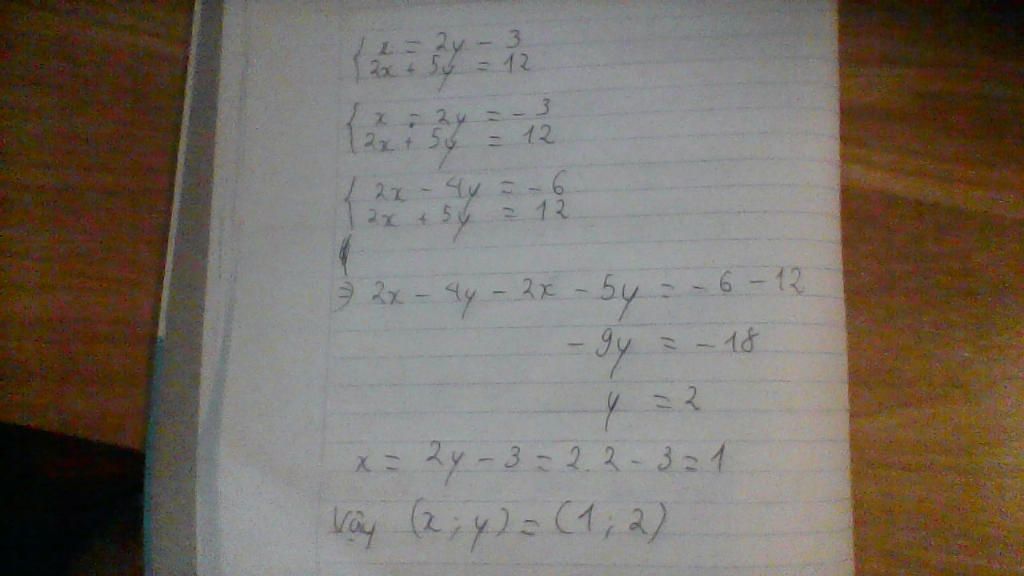 { x = 2y - 3
2x + 5y = 12
{ x = 2y = - 3
2x + 5y = 12
{ 2x - 4y = - 6
2x + 5y = 12
2x - 4y - 2x - 5y = - 6 - 12
- 9y = - 18
y = 2
x = 2y - 3 = 2.2 - 3 = 1
Vậy (x ; y) = (1 ; 2)